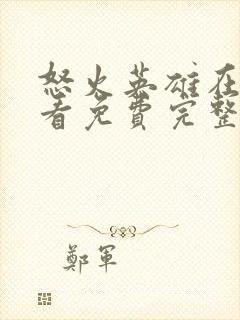 怒火英雄在
看免費完整
鄭軍